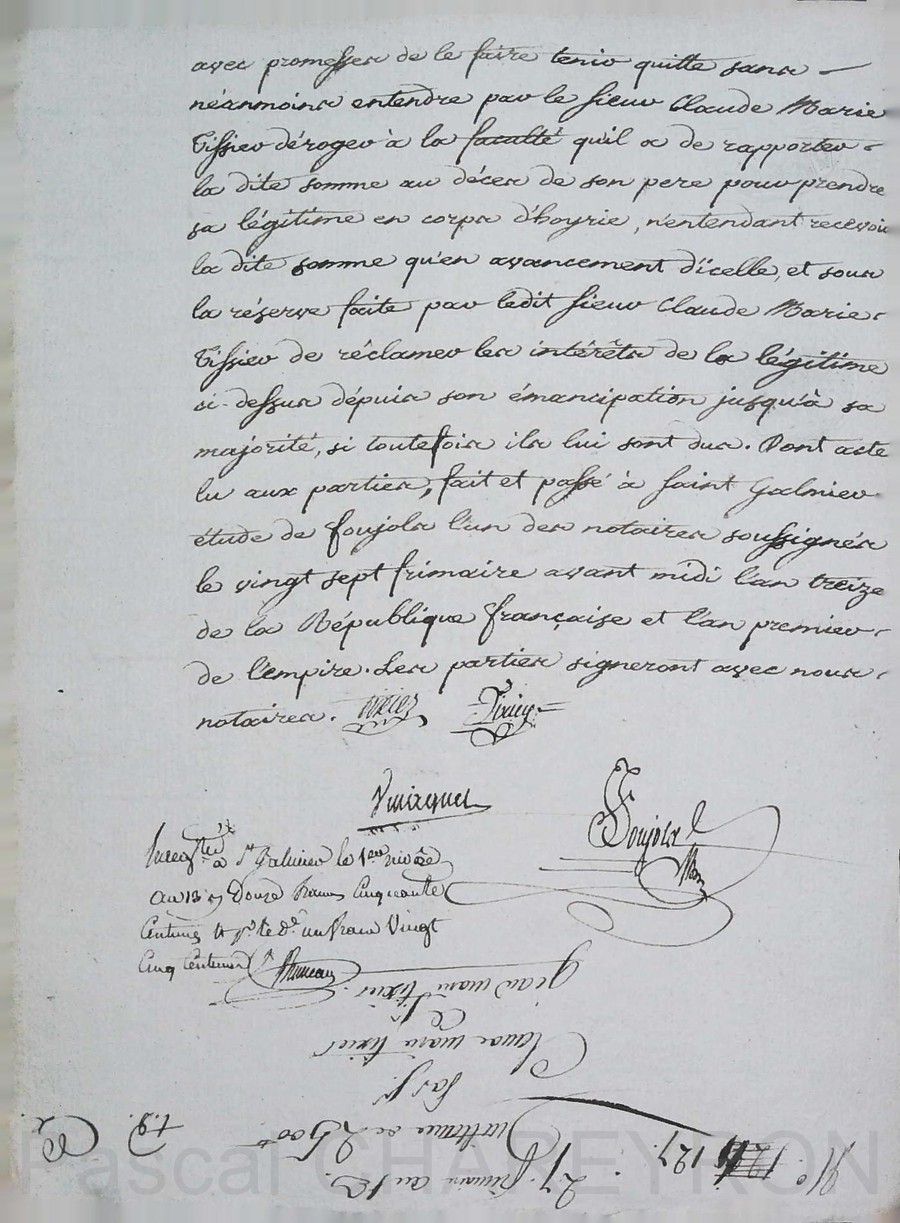 avec promesses de le faire tenir quitte sans
néanmoins entendre par le sieur Claude Marie
Tissier déroger à la faculté qu'il a de rapporter
la dite somme au décès de son pere pour prendre
sa légitime en corps d'hoyrie, n'entendant recevoir
la dite somme qu'en avancement d'icelle, et sous
la réserve faite par ledit sieur Claude Marie
Tissier de réclamer les intérêts de la légitime
ci-dessus dépuis son émancipation jusqu'à sa
majorité, si toutefois ils lui sont dus. Dont acte
lu aux parties, fait et passé à Saint Galmier
étude de Foujols l'un des notaires soussignés
le vingt sept frimaire avant midi l'an treize
de la République française et l'an premier
de l'empire. Les parties signeront avec nous
notaires. tixier Tixier
Foujols
à St Galmier le 1er nivôse
an 13 Douze francs Cinquante
Centimes un franc Vingt
Cinq Centimes
jean marie tixier
Claude marie tixier
par
Quittance de 2500
27 frimaire an 13
N° 127